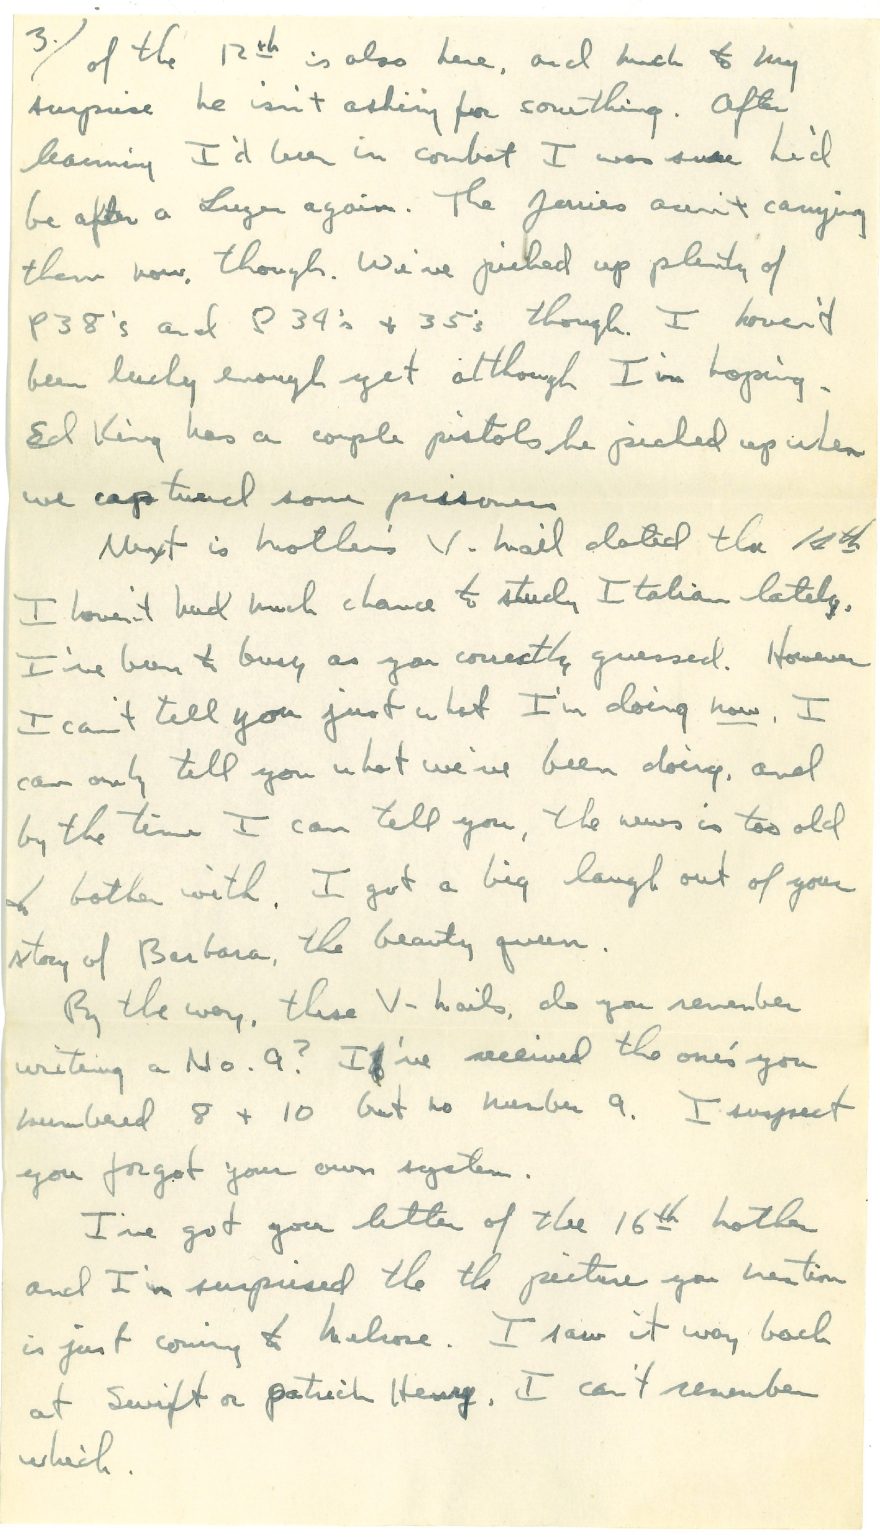 3./ of the 12th is also here, and much to my
surprise he isn't asking for something. After
learning I'd been in combat I was sure he'd
be after a Luger again. The Jerries aren't carrying
them now, though. We've picked up plenty of
P38's and P34's + 35's though. I haven't
been lucky enough yet although I'm hoping.
Ed King has a couple pistols he picked up when
we captured some prisoners
Next is Mother's V-mail dated the 14th
I haven't had much chance to study Italian lately.
I've been to busy as you correctly guessed. However
I can't tell you just what I'm doing now, I
can only tell you what we've been doing, and
by the time I can tell you, the news is too old
to bother with. I got a big laugh out of your
story of Barbara, the beauty queen.
By the way, these V-mails, do you remember
writing a No. 9? I've received the one's you
numbered 8 + 10 but no number 9. I suspect
you forgot your own system.
I've got your letter of the 16th Mother
and I'm surprised the the picture you mention
is just coming to Melrose. I saw it way back
at Swift or Patrick Henry, I can't remember
which.